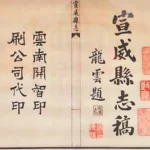 宣威縣志稿
龍雲題
宣威縣志
雲南開智印
刷公司代印